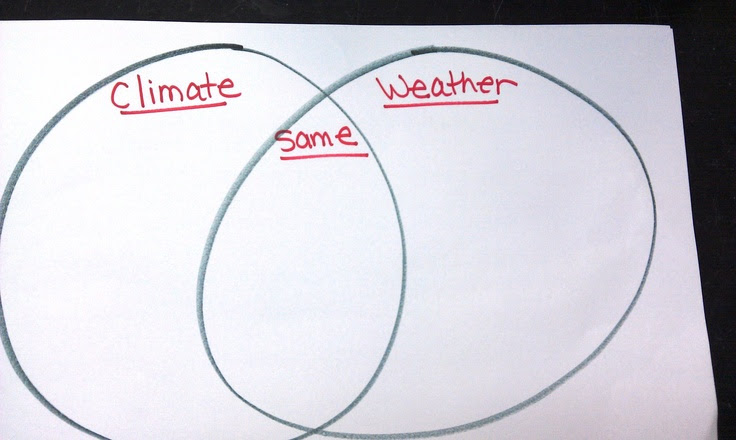 Climate
Weather
same